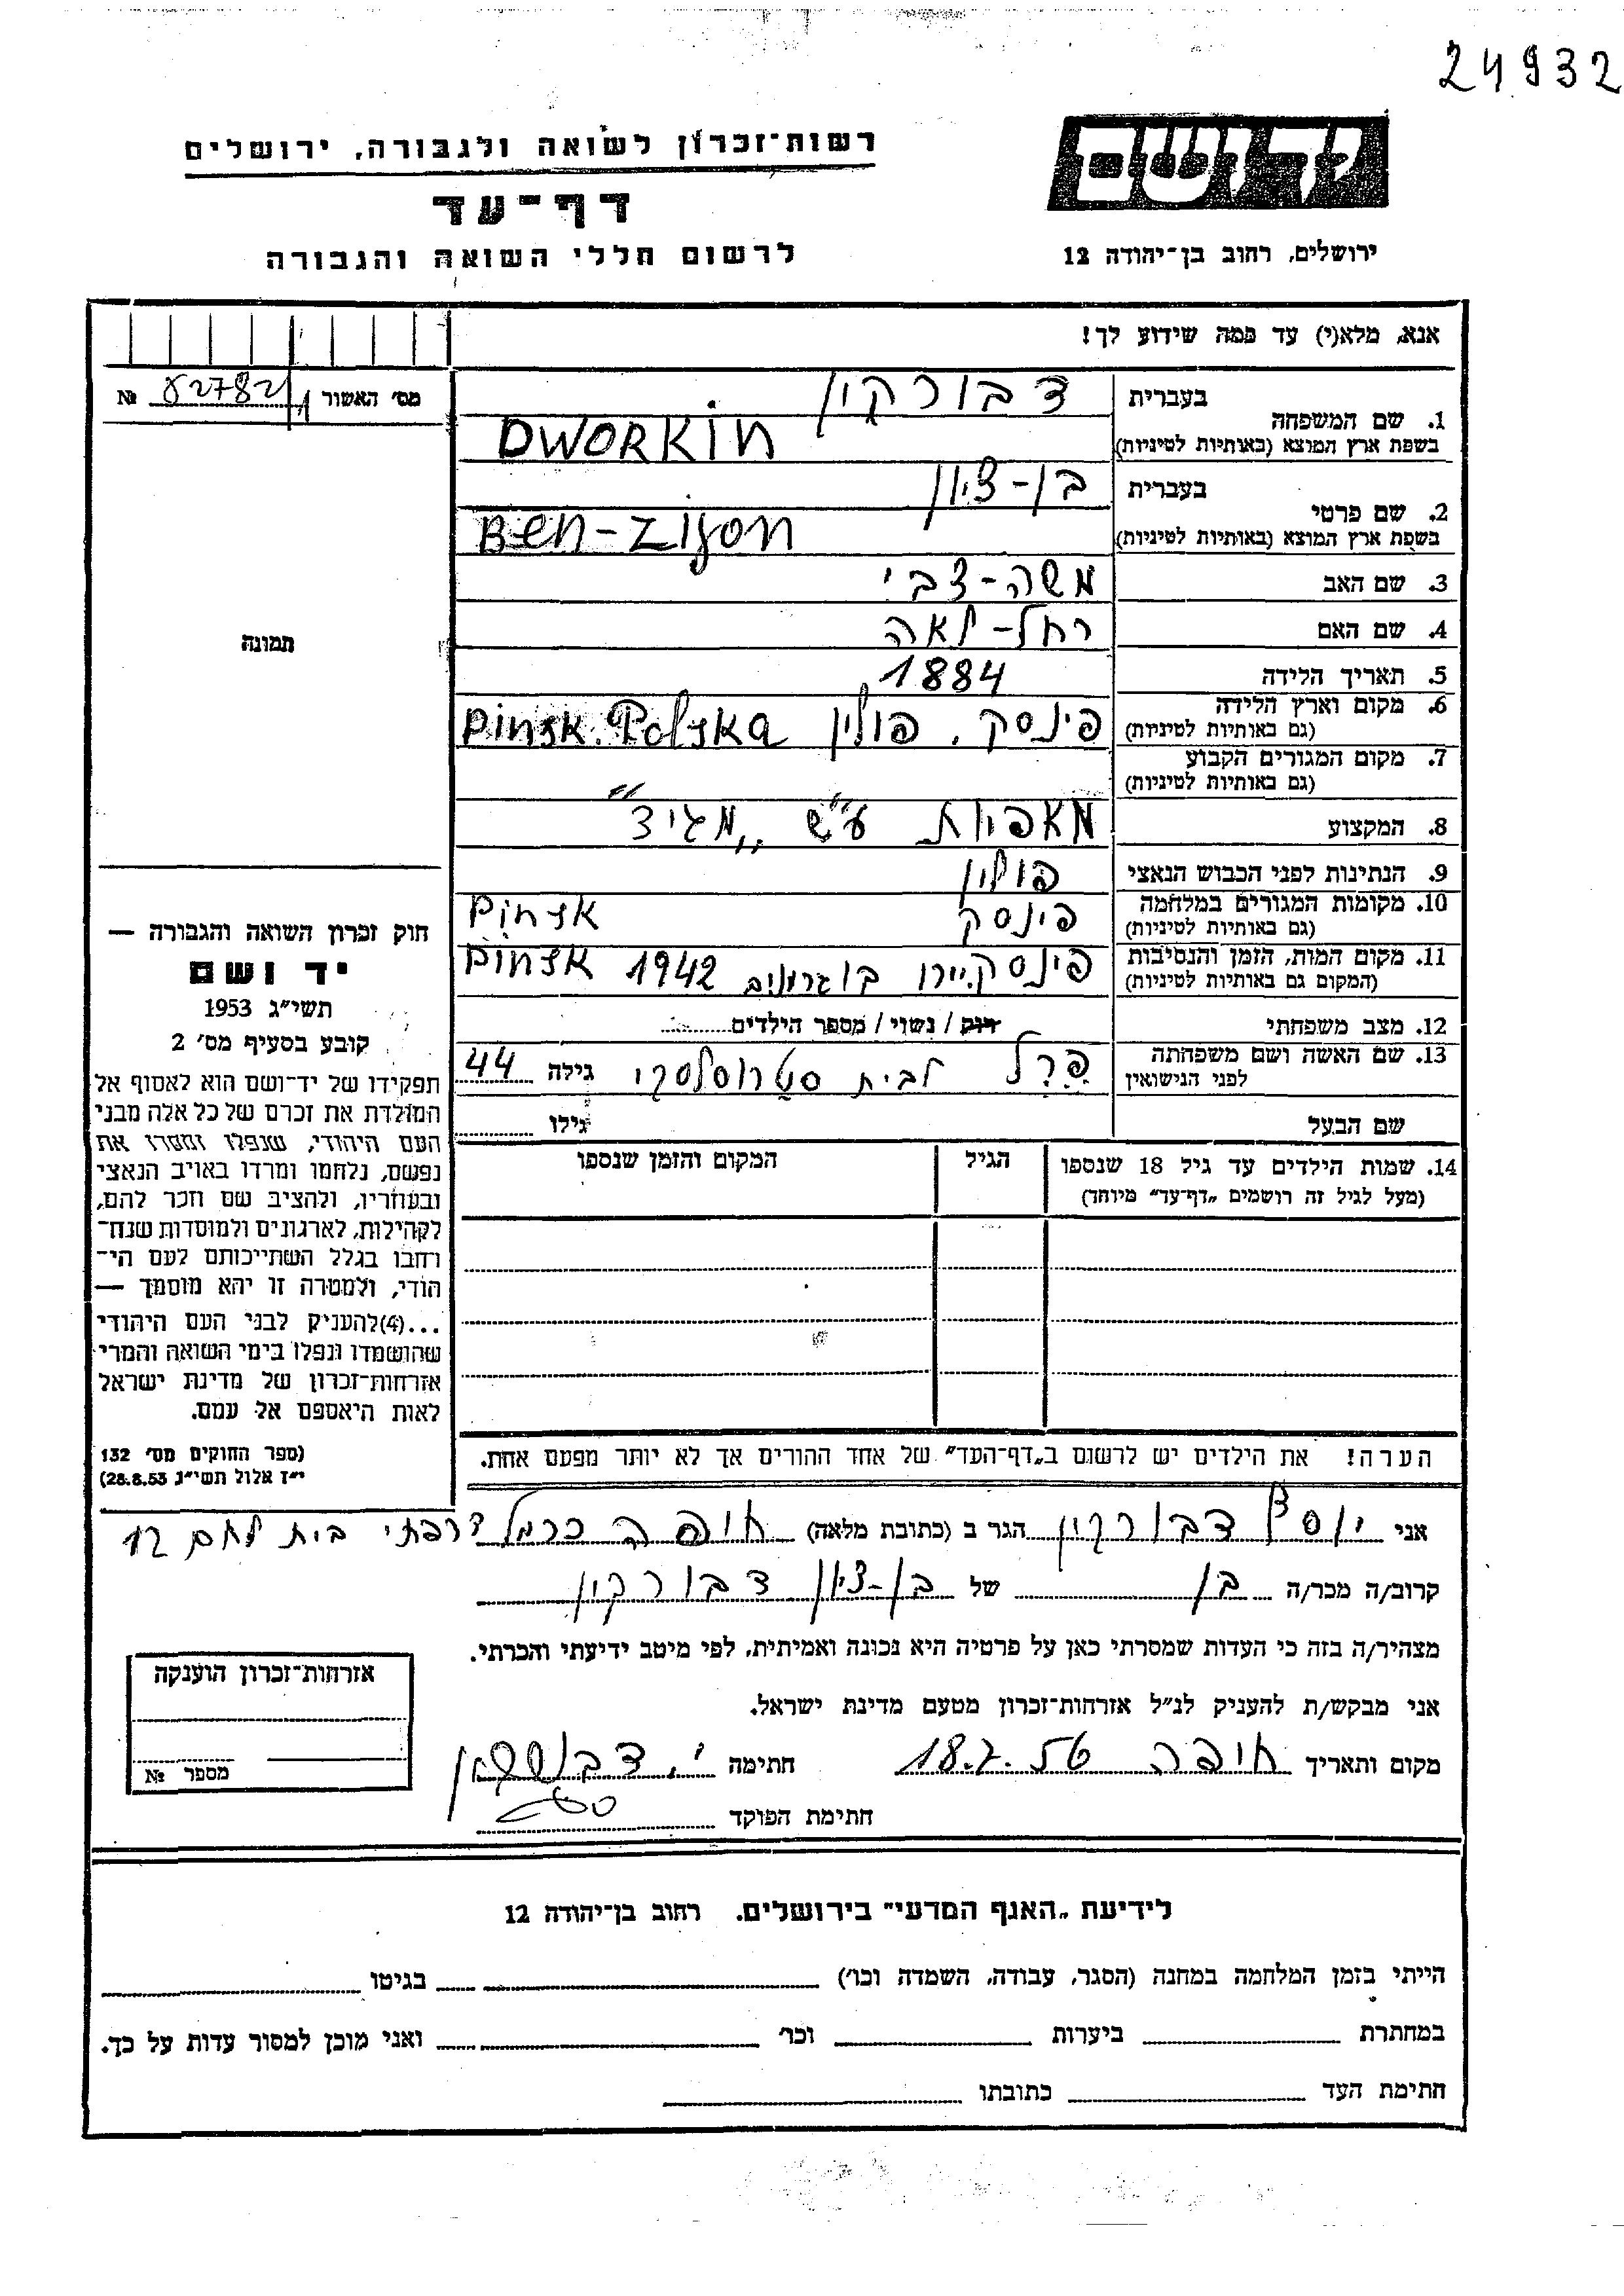 24932
רשות־זכרון לשואה ולגבורה, ירושלים
יד ושם
דף־עד
לרשום חללי השואה והגבורה
ירושלים, רחוב בן־יהודה 12
אנא, מלא(י) עד כמה שידוע לך!
מס׳ האשור № 82782
1. שם המשפחה בעברית דבורקין
בשפת ארץ המוצא (באותיות לטיניות) DWORKiN
2. שם פרטי בעברית בן-ציון
בשפת ארץ המוצא (באותיות לטיניות) Ben-Zijon
3. שם האב משה-צבי
4. שם האם רחל-לאה
5. תאריך הלידה 1884
6. מקום וארץ הלידה (גם באותיות לטיניות) פינסק. פולין Pinsk. Polska
7. מקום המגורים הקבוע (גם באותיות לטיניות)
8. המקצוע מאפיות ע"ש „מגיד"
9. הנתינות לפני הכבוש הנאצי פולין
10. מקומות המגורים במלחמה (גם באותיות לטיניות) פינסק Pinsk
11. מקום המות, הזמן והנסיבות (המקום גם באותיות לטיניות) פינסק 1942 Pinsk
12. מצב משפחתי רוק / נשוי / מספר הילדים
13. שם האשה ושם משפחתה לפני הנישואין פרל לבית גילה 44
שם הבעל גילו
14. שמות הילדים עד גיל 18 שנספו (מעל לגיל זה רושמים „דף־עד״ מיוחד) הגיל המקום והזמן שנספו
תמונה
חוק זכרון השואה והגבורה —
יד ושם
תשי״ג 1953
קובע בסעיף מס׳ 2
תפקידו של יד־ושם הוא לאסוף אל
המולדת את זכרם של כל אלה מבני
העם היהודי, שנפלו ומסרו את
נפשם, נלחמו ומרדו באויב הנאצי
ובעוזריו, ולהציב שם וזכר להם,
לקהילות, לארגונים ולמוסדות שנח־
רבו בגלל השתייכותם לעם הי־
הודי, ולמטרה זו יהא מוסמך —
...(4)להעניק לבני העם היהודי
שהושמדו ונפלו בימי השואה והמרי
אזרחות־זכרון של מדינת ישראל
לאות היאספם אל עמם.
(ספר החוקים מס׳ 132
י״ז אלול תשי״ג 28.8.53)
הערה! את הילדים יש לרשום ב„דף־העד״ של אחד ההורים אך לא יותר מפעם אחת.
אני יוסף דבורקין הגר ב (כתובת מלאה) חיפה כרמל צרפתי בית לחם 12
קרוב/ה מכר/ה בן של בן-ציון דבורקין
מצהיר/ה בזה כי העדות שמסרתי כאן על פרטיה היא נכונה ואמיתית, לפי מיטב ידיעתי והכרתי.
אני מבקש/ת להעניק לנ״ל אזרחות־זכרון מטעם מדינת ישראל.
מקום ותאריך חיפה 18.7.56 חתימה י. דבורקין
חתימת הפוקד
אזרחות־זכרון הוענקה
מספר №
לידיעת „האגף המדעי״ בירושלים. רחוב בן־יהודה 12
הייתי בזמן המלחמה במחנה (הסגר, עבודה, השמדה וכו׳) בגיטו
במחתרת ביערות וכו׳ ואני מוכן למסור עדות על כך.
חתימת העד כתובתו